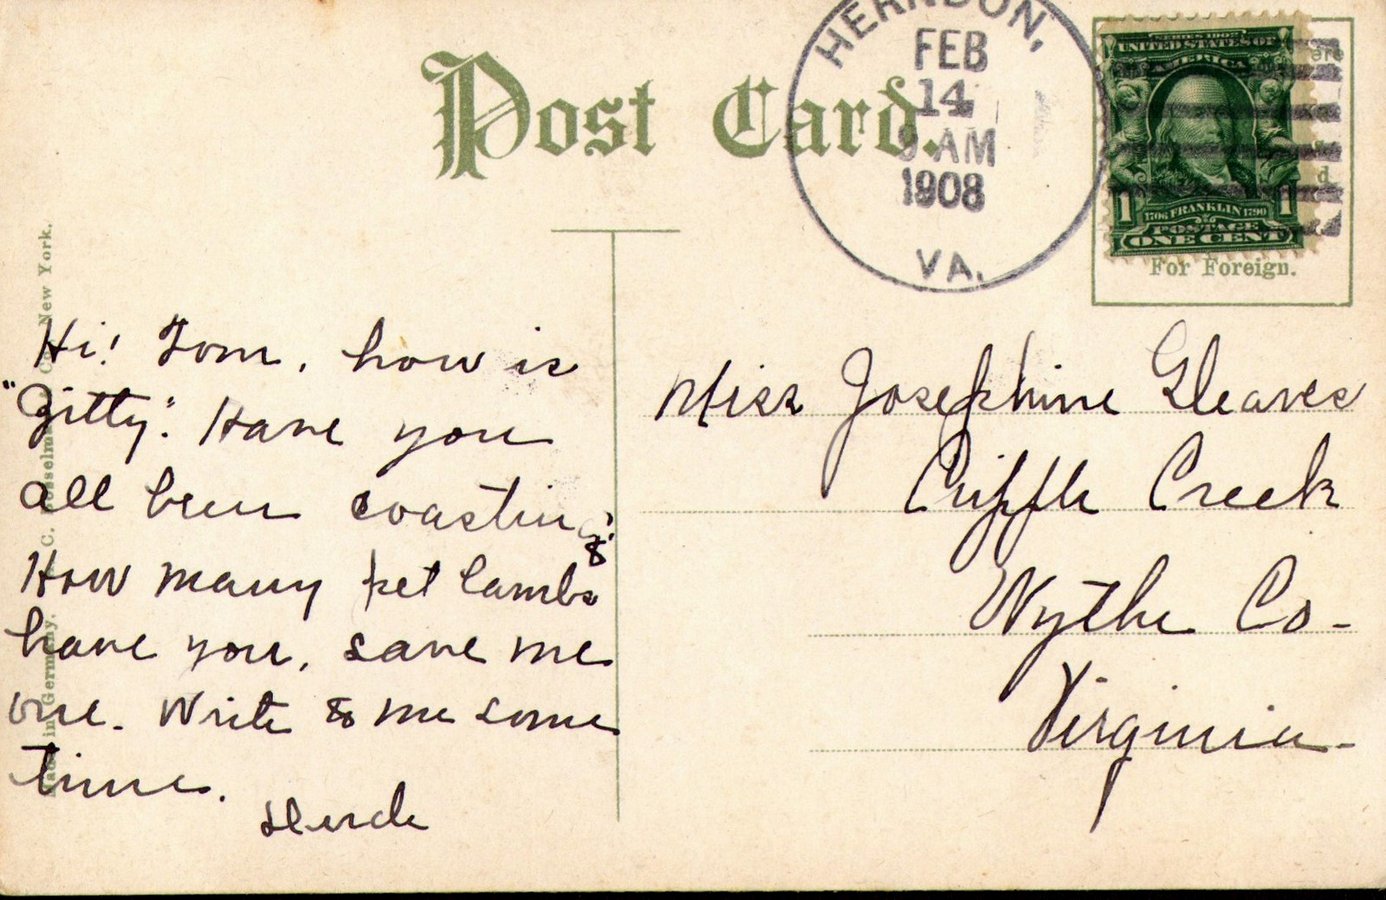 Post Card.
HERNDON,
FEB
14
9 AM
1908
VA.
SERIES 1902
UNITED STATES OF
AMERICA
1 1706 FRANKLIN 1790 1
POSTAGE
ONE CENT
For Foreign.
Hi! Tom, how is
"Zitty". Have you
all been coasting?
How many pet lambs
have you, save me
one. Write to me some
time.
Miss Josephine Gleaves
Cripple Creek
Wythe Co-
Virginia-
Made in Germany. New York.